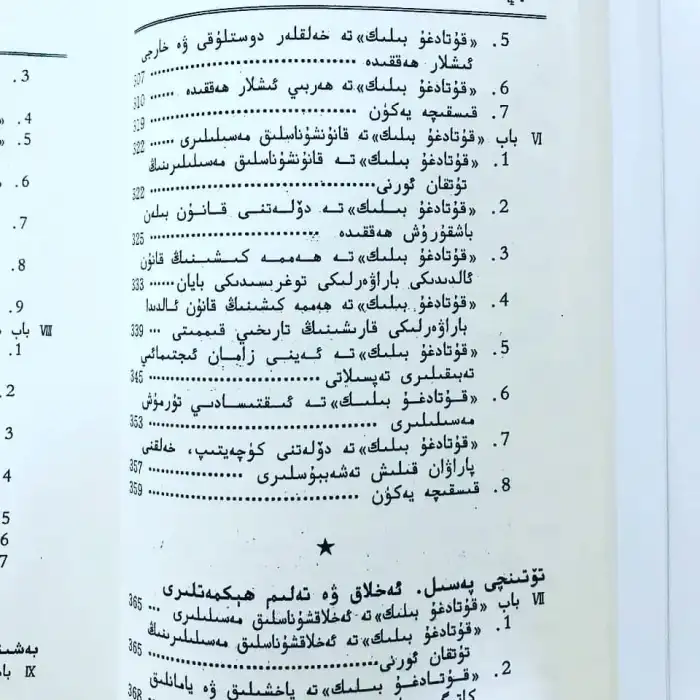 5. «قۇتادغۇ بىلىك» تە خەلقلەر دوستلۇقى ۋە خارجى
ئىشلار ھەققىدە ........................ 307
6. «قۇتادغۇ بىلىك» تە ھەربىي ئىشلار ھەققىدە ...... 310
7. قىسقىچە يەكۈن ........................ 319
VI باب «قۇتادغۇ بىلىك» تە قانۇنشۇناسلىق مەسىلىلىرى ...... 322
1. «قۇتادغۇ بىلىك» تە قانۇنشۇناسلىق مەسىلىلىرىنىڭ
تۇتقان ئورنى ........................ 322
2. «قۇتادغۇ بىلىك» تە دۆلەتنى قانۇن بىلەن
باشقۇرۇش ھەققىدە ........................ 325
3. «قۇتادغۇ بىلىك» تە ھەممە كىشىنىڭ قانۇن
ئالدىدىكى باراۋەرلىكى توغرىسىدىكى بايان ...... 333
4. «قۇتادغۇ بىلىك» تە ھەممە كىشىنىڭ قانۇن ئالدىدا
باراۋەرلىكى قارىشىنىڭ تارىخىي قىممىتى ... 339
5. «قۇتادغۇ بىلىك» تە ئەينى زامان ئىجتىمائىي
تەبىقىلىرى تەپسىلاتى ........................ 345
6. «قۇتادغۇ بىلىك» تە ئىقتىسادىي تۇرمۇش
مەسىلىلىرى ........................ 353
7. «قۇتادغۇ بىلىك» تە دۆلەتنى كۈچەيتىپ، خەلقنى
پاراۋان قىلىش تەشەببۇسلىرى ........................ 357
8. قىسقىچە يەكۈن ........................ 359
★
تۆتىنچى پەسىل. ئەخلاق ۋە تەلىم ھېكمەتلىرى
VII باب «قۇتادغۇ بىلىك» تە ئەخلاقشۇناسلىق مەسىلىلىرى ... 365
1. «قۇتادغۇ بىلىك» تە ئەخلاقشۇناسلىق مەسىلىلىرىنىڭ
تۇتقان ئورنى ........................ 365
2. «قۇتادغۇ بىلىك» تە ياخشىلىق ۋە يامانلىق
368
3.
4. «
5. «
6.
7.
8.
9.
VIII باب
1.
2.
3
4
5
6
7
بەشىن
IX با